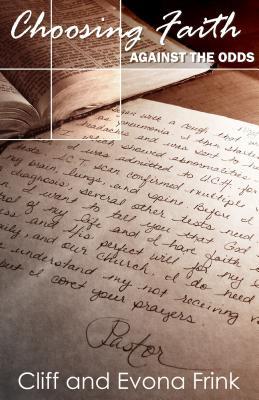 Choosing Faith
AGAINST THE ODDS
with a cough that
pneumonia. I then started
headaches and was sent to
which showed abnormalities
CT scan confirmed multiple
my brain, lungs, and spine. Before I
diagnosis, several other tests need
want to tell you that God
of my life and I have faith
and His perfect will for my
and our church. I do need
understand my not receiving
but I covet your prayers
Pastor
Cliff and Evona Frink